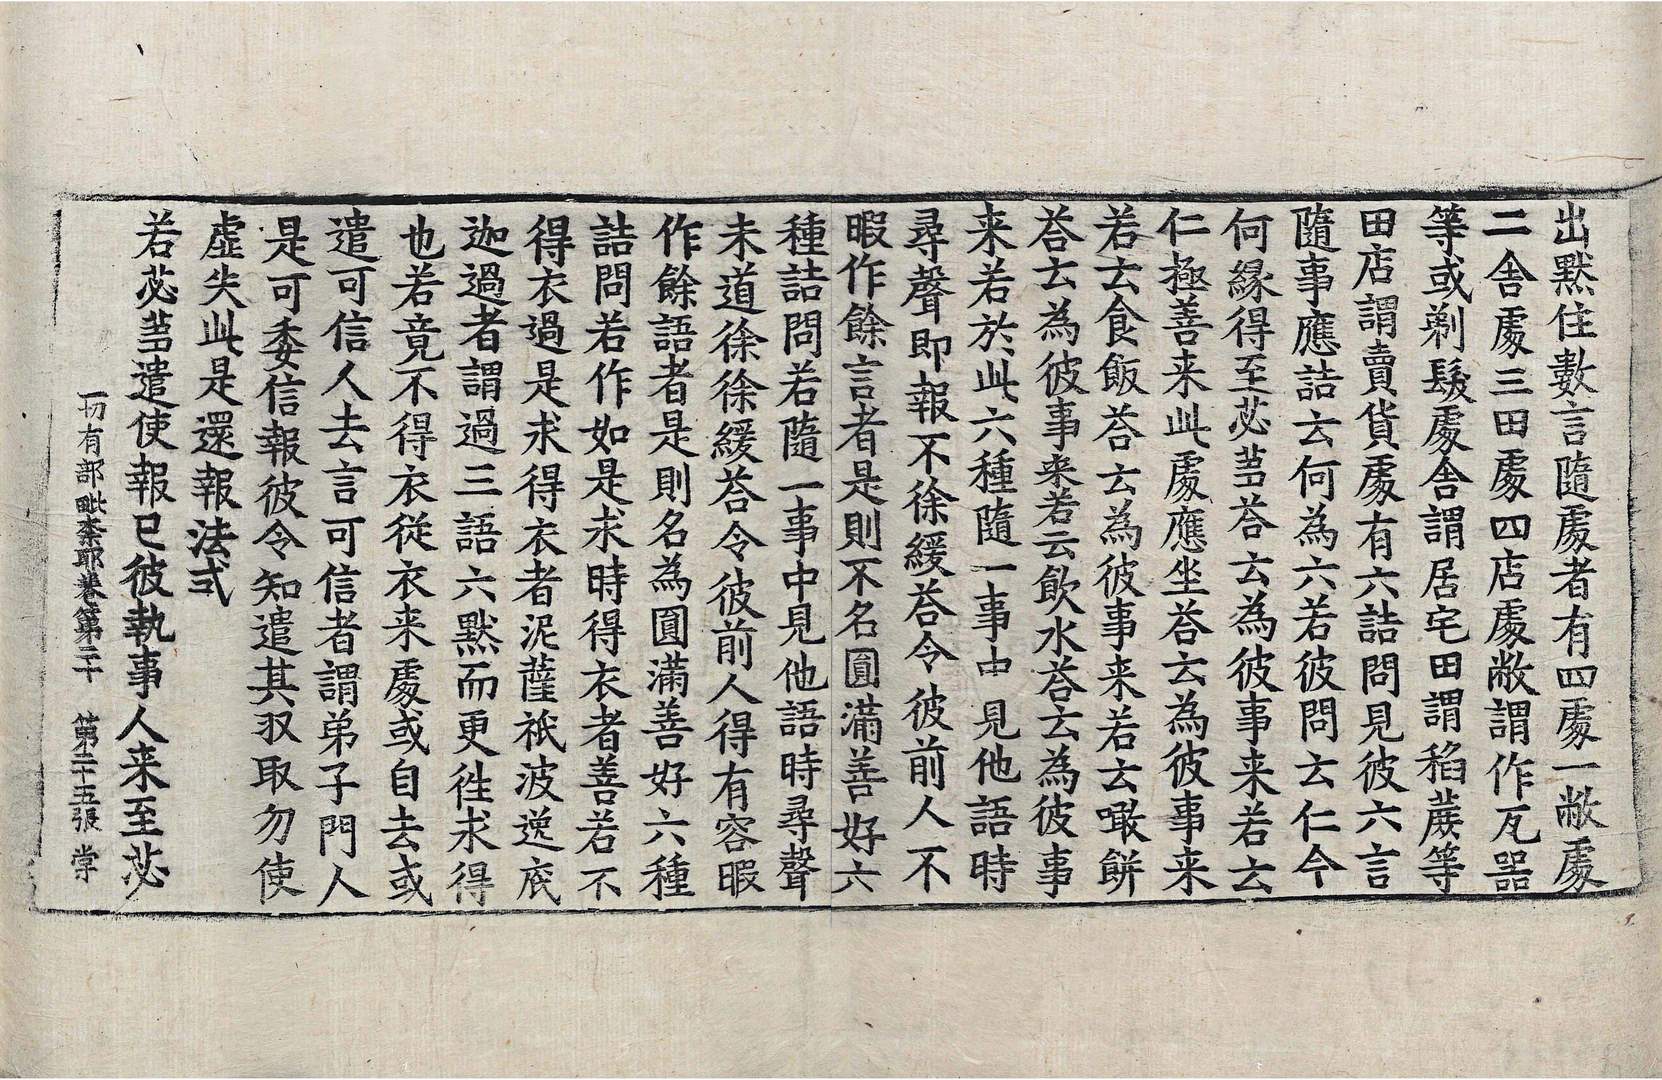 出黙住數言隨處者有四處一敝處
二舍處三田處四店處敝謂作瓦器
等或剃髮處舍謂居宅田謂稻蔗等
田店謂賣貨處有六詰問見彼六言
隨事應詰云何為六若彼問云仁今
何緣得至苾芻荅云為彼事来若云
仁極善来此處應坐荅云為彼事来
若云食飯荅云為彼事来若云噉餅
荅云為彼事来若云飲水荅云為彼事
来若於此六種隨一事中見他語時
尋聲即報不徐緩荅令彼前人不
暇作餘言者是則不名圓滿善好六
種詰問若隨一事中見他語時尋聲
未道徐徐緩荅令彼前人得有容暇
作餘語者是則名為圓滿善好六種
詰問若作如是求時得衣者善若不
得衣過是求得衣者泥薩祇波逸底
迦過者謂過三語六黙而更徃求得
也若竟不得衣從衣来處或自去或
遣可信人去言可信者謂弟子門人
是可委信報彼令知遣其収取勿使
虛失此是還報法式
若苾芻遣使報已彼執事人来至苾
一切有部毗柰耶卷第二十　第二十五張　堂